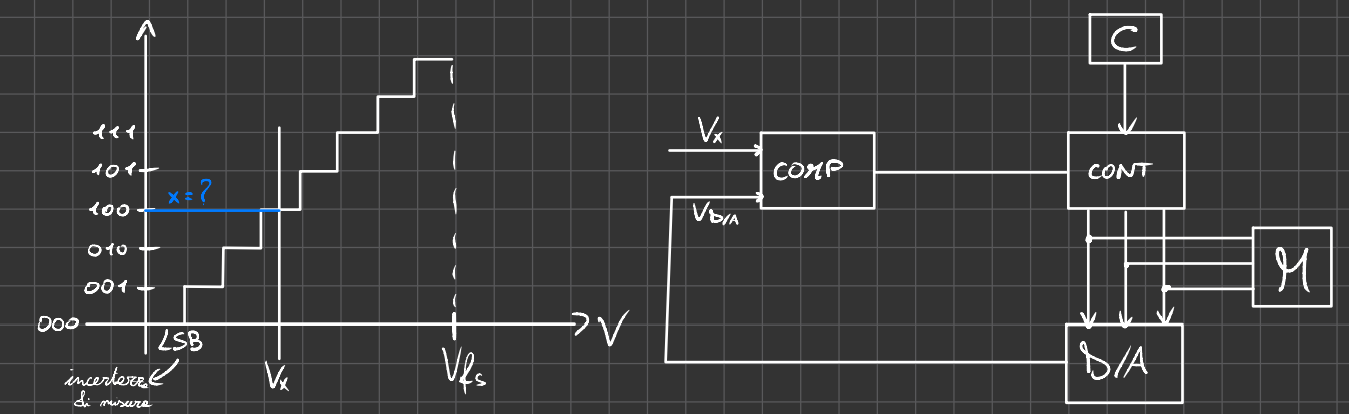 111
101
100
010
001
000
x = ?
LSB
incertezza
di misura
Vx
Vfs
V
Vx
VD/A
COMP
C
CONT
M
D/A